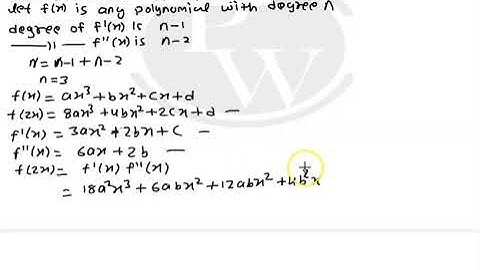 let f(x) is any polynomial with degree n
degree of f'(x) is n-1
—— 11 —— f"(x) is n-2
n = n-1 + n-2
n = 3
f(x) = ax³ + bx² + cx + d
f(2x) = 8ax³ + 4bx² + 2cx + d —
f'(x) = 3ax² + 2bx + c —
f"(x) = 6ax + 2b —
f(2x) = f'(x) f"(x)
= 18a²x³ + 6abx² + 12abx² + 4b²x
P
W